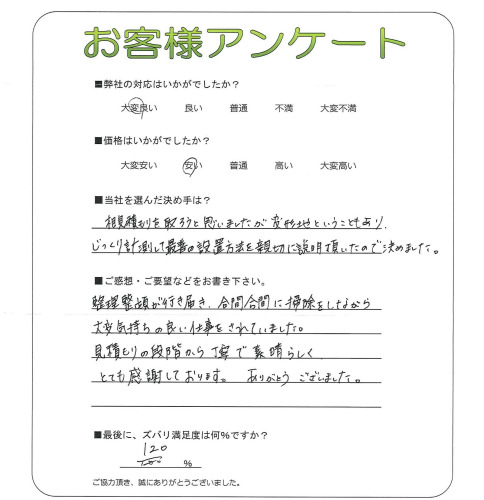 お客様アンケート
■弊社の対応はいかがでしたか？
大変良い 良い 普通 不満 大変不満
■価格はいかがでしたか？
大変安い 安い 普通 高い 大変高い
■当社を選んだ決め手は？
相見積もりを取ろうと思いましたが変形地ということもあり、
じっくり計測して最善の設置方法を親切に説明頂いたので決めました。
■ご感想・ご要望などをお書き下さい。
整理整頓が行き届き、合間合間に掃除をしながら
大変気持ちの良い仕事をされていました。
見積もりの段階から丁寧で素晴らしく
とても感謝しております。 ありがとうございました。
■最後に、ズバリ満足度は何％ですか？
120
100 ％
ご協力頂き、誠にありがとうございました。